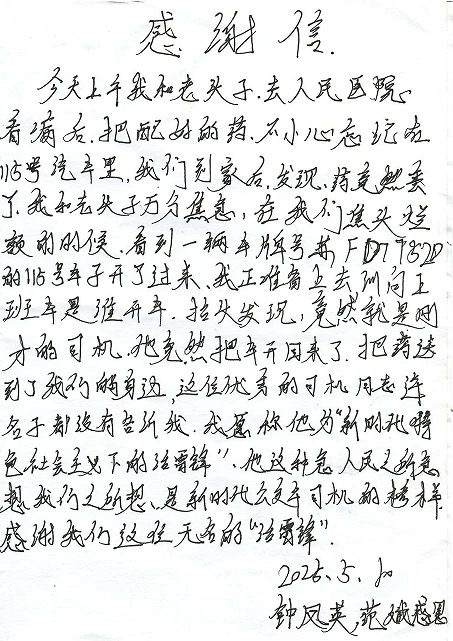 感谢信.
今天上午我和老头子.去人民医院
看病后.把配好的药.不小心忘记在
115号汽车里.我们到家后.发现.药竟然丢
了.我和老头子万分焦急.在我们焦头烂
额的时候.看到一辆车牌号苏FD
的115号车子开了过来.我正准备上去询问上
班车是谁开车.抬头发现.竟然就是刚
才的司机.他竟然把车开回来了.把药送
到了我们的身边.这位优秀的司机同志连
名字都没有告诉我.我愿称他为"新时代特
色社会主义下的活雷锋".他这种急人民之所急
想我们之所想.是新时代公交车司机的榜样.
感谢我们这位无名的"活雷锋".
2025.5.20
钟凤英,范 感恩